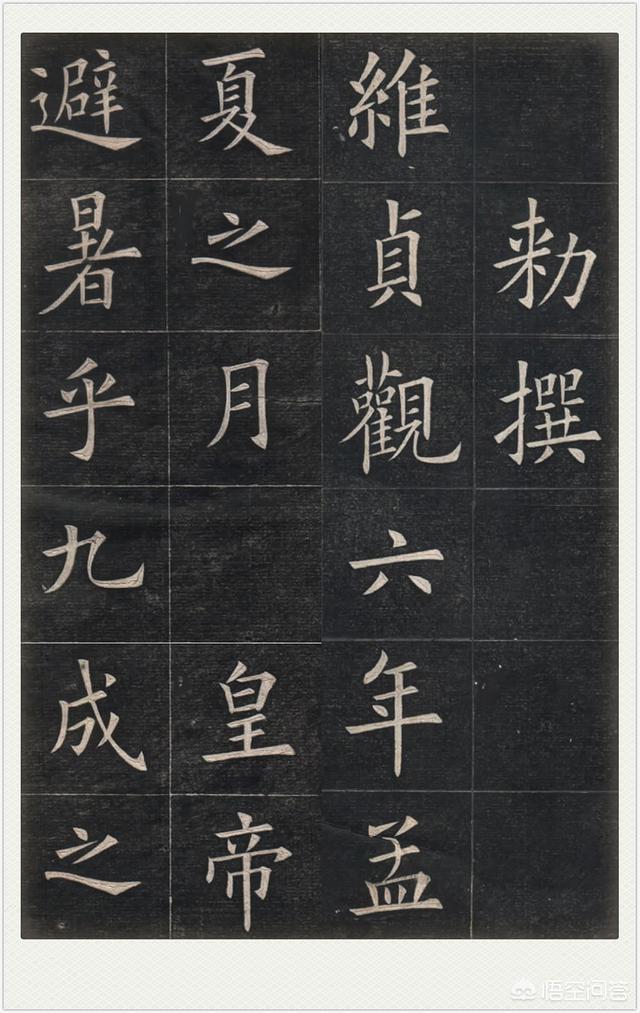 勑撰
維貞觀六年孟
夏之月 皇帝
避暑乎九成之
悟空问答